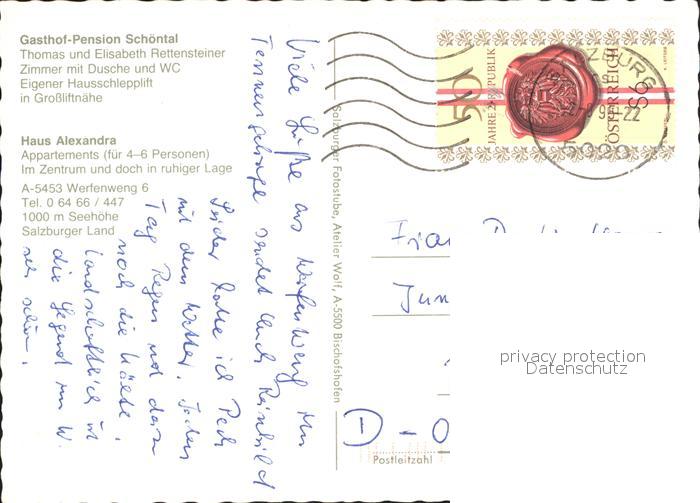 Gasthof-Pension Schöntal
Thomas und Elisabeth Rettensteiner
Zimmer mit Dusche und WC
Eigener Hausschlepplift
in Großliftnähe
Haus Alexandra
Appartements (für 4–6 Personen)
Im Zentrum und doch in ruhiger Lage
A-5453 Werfenweg 6
Tel. 0 64 66 / 447
1000 m Seehöhe
Salzburger Land
Viele Grüße aus Werfenweng im
Tennengebirge sendet Euch
Leider hatte ich Pech
mit dem Wetter. Jeden
Tag Regen und dazu
noch die Kälte.
Landschaftlich ist
die Gegend um W.
sehr schön.
Salzburger Fotostube, Atelier Wolf, A-5500 Bischofshofen
50
JAHRE 2. REPUBLIK
ÖSTERREICH
S6
5020
D - 0
Postleitzahl
privacy protection
Datenschutz